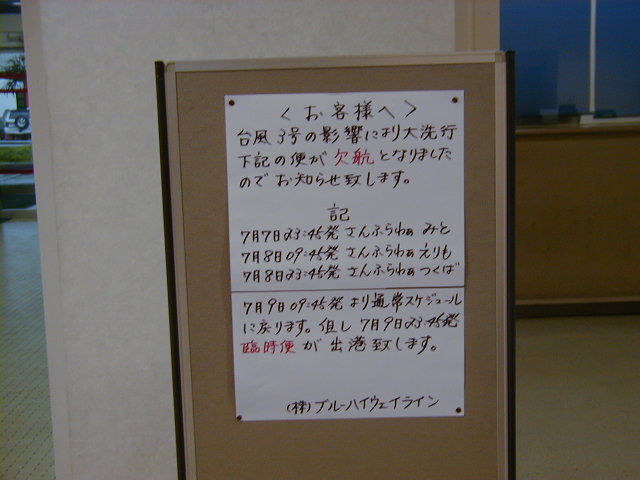 <お客様へ>
台風3号の影響により大洗行
下記の便が欠航となりました
のでお知らせ致します。
記
7月7日23:45発 さんふらわぁ みと
7月8日09:45発 さんふらわぁ えりも
7月8日23:45発 さんふらわぁ つくば
7月9日09:45発 より通常スケジュール
に戻ります。但し 7月9日23:45発
臨時便が出港致します。
(株)ブルーハイウェイライン